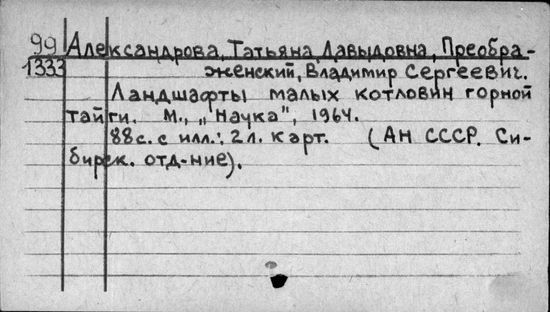 99 Александрова, Татьяна Давыдовна, Преобра-
1333 женский, Владимир Сергеевич.
Ландшафты малых котловин горной
тайги. М., „Наука", 1964.
88 с. с илл.; 2 л. карт. (АН СССР. Си-
бирск. отд-ние).